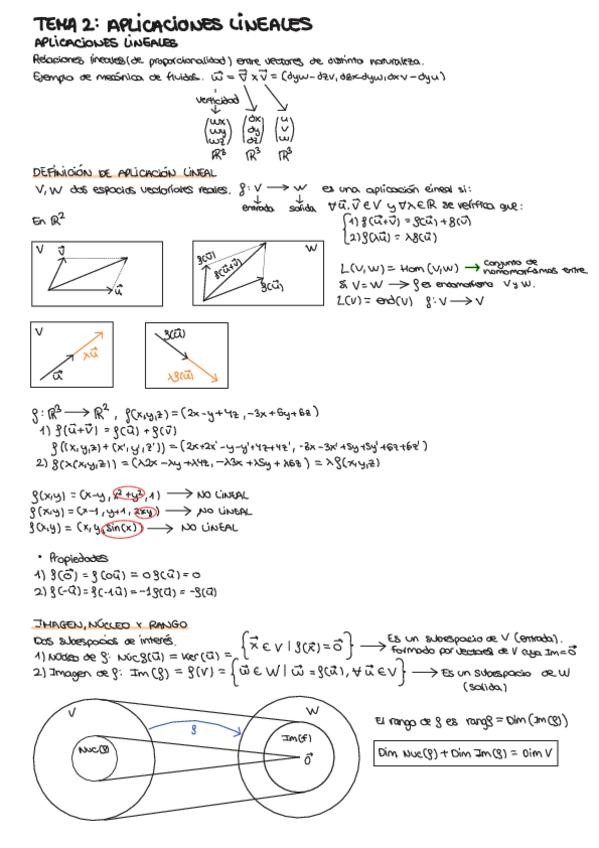 TEMA 2: APLICACIONES LINEALES
APLICACIONES LINEALES
Relaciones lineales (de proporcionalidad) entre vectores de distinta naturaleza.
Ejemplo de mecánica de fluidos. w⃗ = ∇⃗ x v⃗ = (dyw-dzv, dzx-dyw, dxv-dyu)
vorticidad
(wx wy wz) (dx dy dz) (u v w)
ℝ³ ℝ³ ℝ³
DEFINICIÓN DE APLICACIÓN LINEAL
V, W dos espacios vectoriales reales. f: V → W es una aplicación lineal si:
entrada salida ∀u⃗, v⃗ ∈ V y ∀λ∈ℝ se verifica que:
1) f(u⃗+v⃗) = f(u⃗) + f(v⃗)
2) f(λu⃗) = λf(u⃗)
En ℝ²
V v⃗ u⃗
W f(v⃗) f(u⃗+v⃗) f(u⃗)
L(V,W) = Hom(V,W) → conjunto de homomorfismos entre V y W.
Si V=W → f es endomorfismo
L(V) = end(V) f: V → V
V u⃗ λu⃗
f(u⃗) λf(u⃗)
f: ℝ³ → ℝ², f(x,y,z) = (2x-y+4z, -3x+5y+6z)
1) f(u⃗+v⃗) = f(u⃗) + f(v⃗)
f((x,y,z) + (x',y',z')) = (2x+2x'-y-y'+4z+4z', -3x-3x'+5y+5y'+6z+6z')
2) f(λ(x,y,z)) = (λ2x-λy+λ4z, -λ3x+λ5y+λ6z) = λf(x,y,z)
f(x,y) = (x-y, x²+y², 1) → NO LINEAL
f(x,y) = (x-1, y+1, 2xy) → NO LINEAL
f(x,y) = (x, y, sin(x)) → NO LINEAL
• Propiedades
1) f(0⃗) = f(0u⃗) = 0f(u⃗) = 0
2) f(-u⃗) = f(-1u⃗) = -1f(u⃗) = -f(u⃗)
IMAGEN, NÚCLEO Y RANGO
Dos subespacios de interés.
1) Núcleo de f: Nucf(u⃗) = Ker(u⃗) = {x⃗ ∈ V | f(x⃗) = 0⃗} → Es un subespacio de V (entrada). formado por vectores de V cuya Im=0⃗
2) Imagen de f: Im(f) = f(V) = {w⃗ ∈ W | w⃗ = f(u⃗), ∀u⃗ ∈ V} → Es un subespacio de W (salida)
V f W
Nuc(f) Im(f) 0⃗
El rango de f es rangf = Dim(Im(f))
Dim Nuc(f) + Dim Im(f) = Dim V